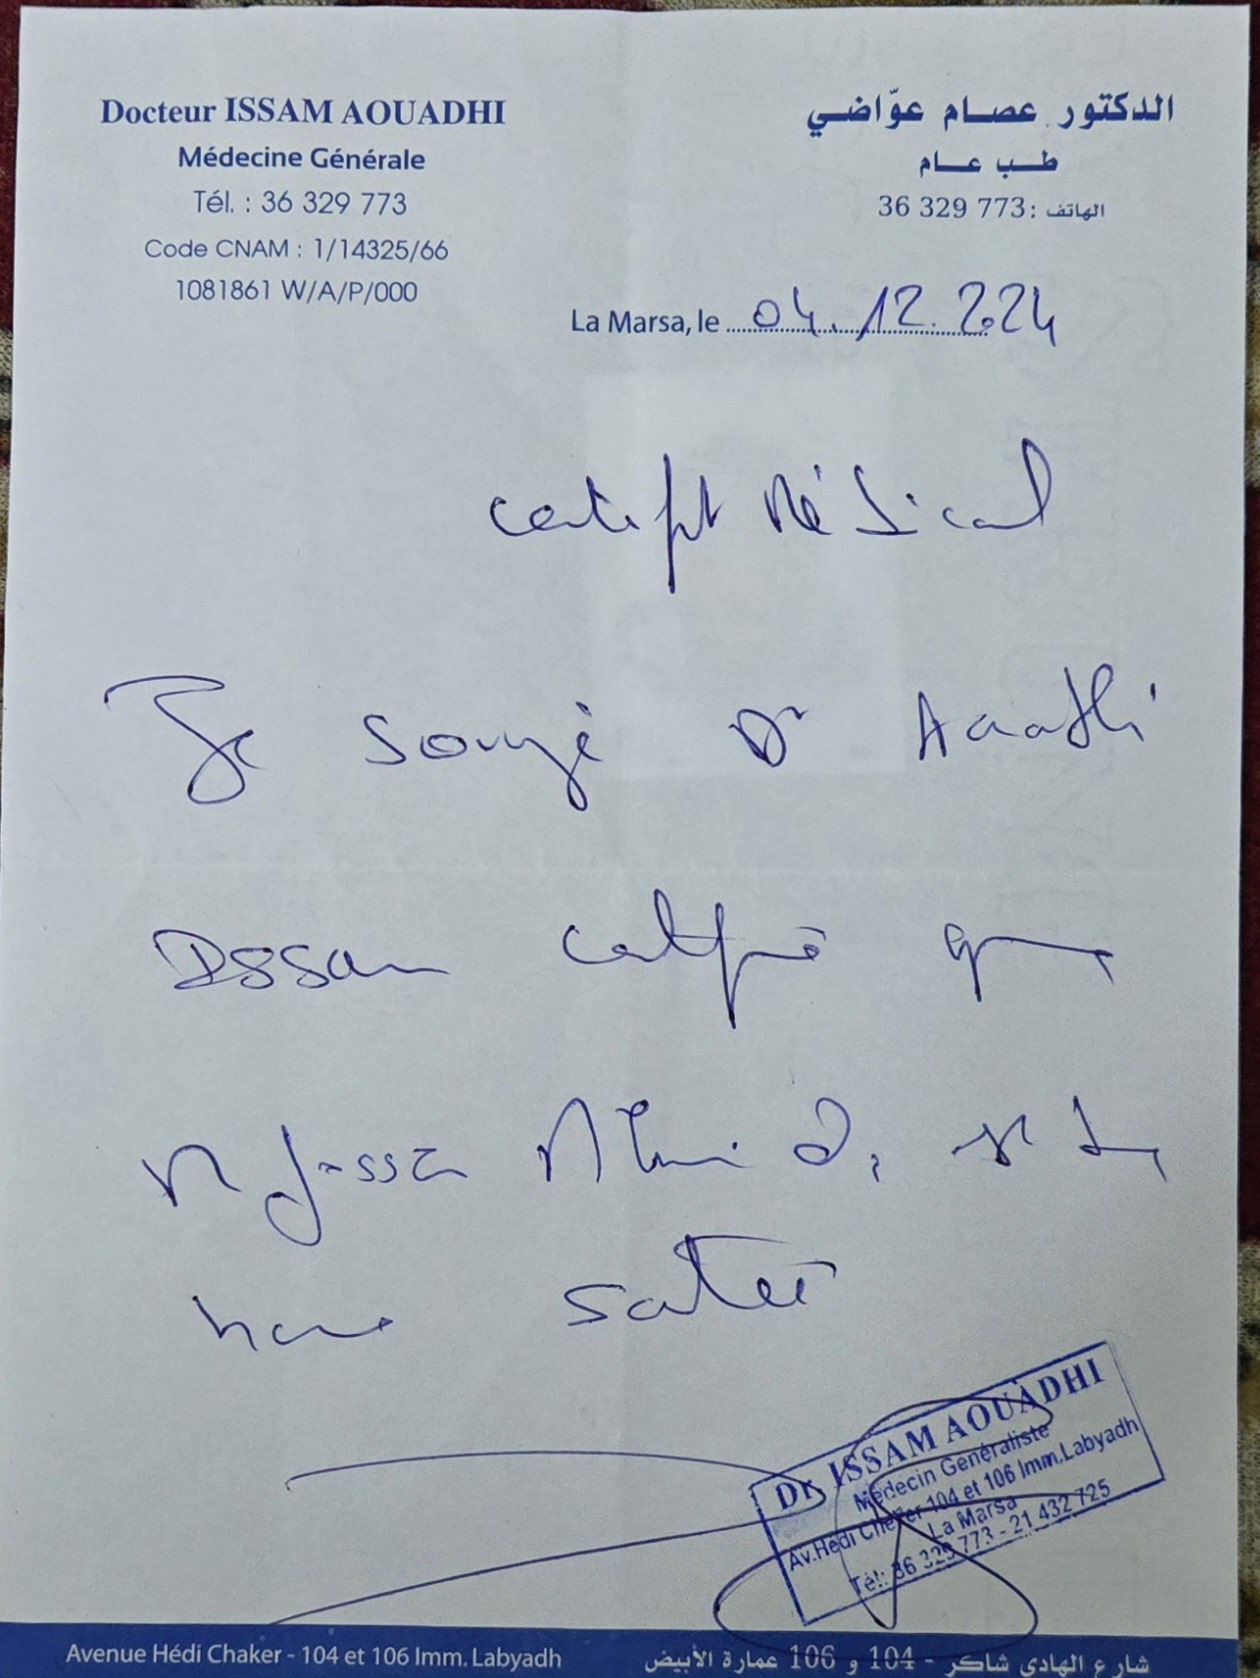 Docteur ISSAM AOUADHI
Médecine Générale
Tél. : 36 329 773
Code CNAM : 1/14325/66
1081861 W/A/P/000
الدكتور عصام عوّاضي
طب عام
الهاتف : 36 329 773
La Marsa, le 04.12.2024
Certificat Médical
Je soussigné Dr Aouadhi
Issam certifie que
est en
bonne santé
Dr ISSAM AOUADHI
Médecin Généraliste
Av.Hédi Cheker 104 et 106 Imm.Labyadh
La Marsa
Tél: 36 329 773 - 21 432 725
Avenue Hédi Chaker - 104 et 106 Imm. Labyadh
شارع الهادي شاكر - 104 و 106 عمارة الأبيض